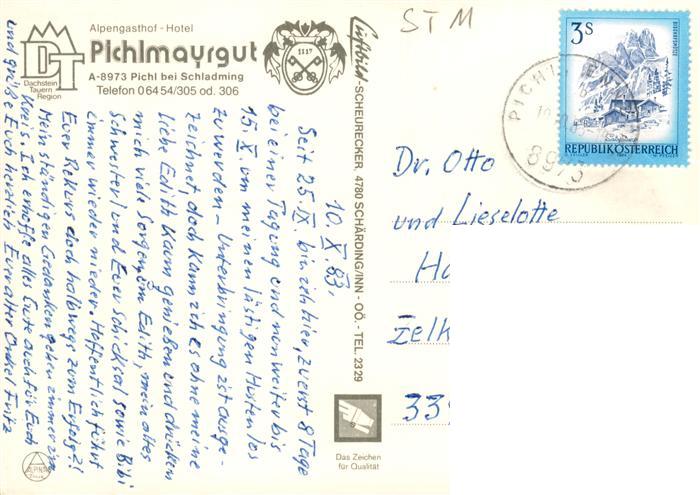 Alpengasthof - Hotel
Pichlmayrgut
A-8973 Pichl bei Schladming
Telefon 06454/305 od. 306
DT
Dachstein
Tauern
Region
1117
10. X. 83.
Seit 25. IX. bin ich hier, zuerst 8 Tage
bei einer Tagung und nun weiter bis
15. X. um meinen lästigen Husten los
zu werden - Unterbringung ist ausge-
zeichnet doch kann ich es ohne meine
liebe Edith kaum genießen und drücken
mich viele Sorgen um Edith, mein altes
Schwesterl und Euer Schicksal sowie Bibi
immer wieder nieder. Hoffentlich führt
Euer Rekurs doch halbwegs zum Erfolg?!
Mein ständigen Gedanken gehen immer im
Kreis. Ich erhoffe alles Gute auch für Euch
und grüße Euch herzlich Euer alter Onkel Fritz
Luftbild-SCHEURECKER, 4780 SCHÄRDING/INN - OÖ. - TEL. 2329
Das Zeichen
für Qualität
ALPINA
STM
3 S
BISCHOFSMÜTZE
REPUBLIK ÖSTERREICH
PICHL
8973
Dr. Otto
und Lieselotte
Ha
Zelk
339